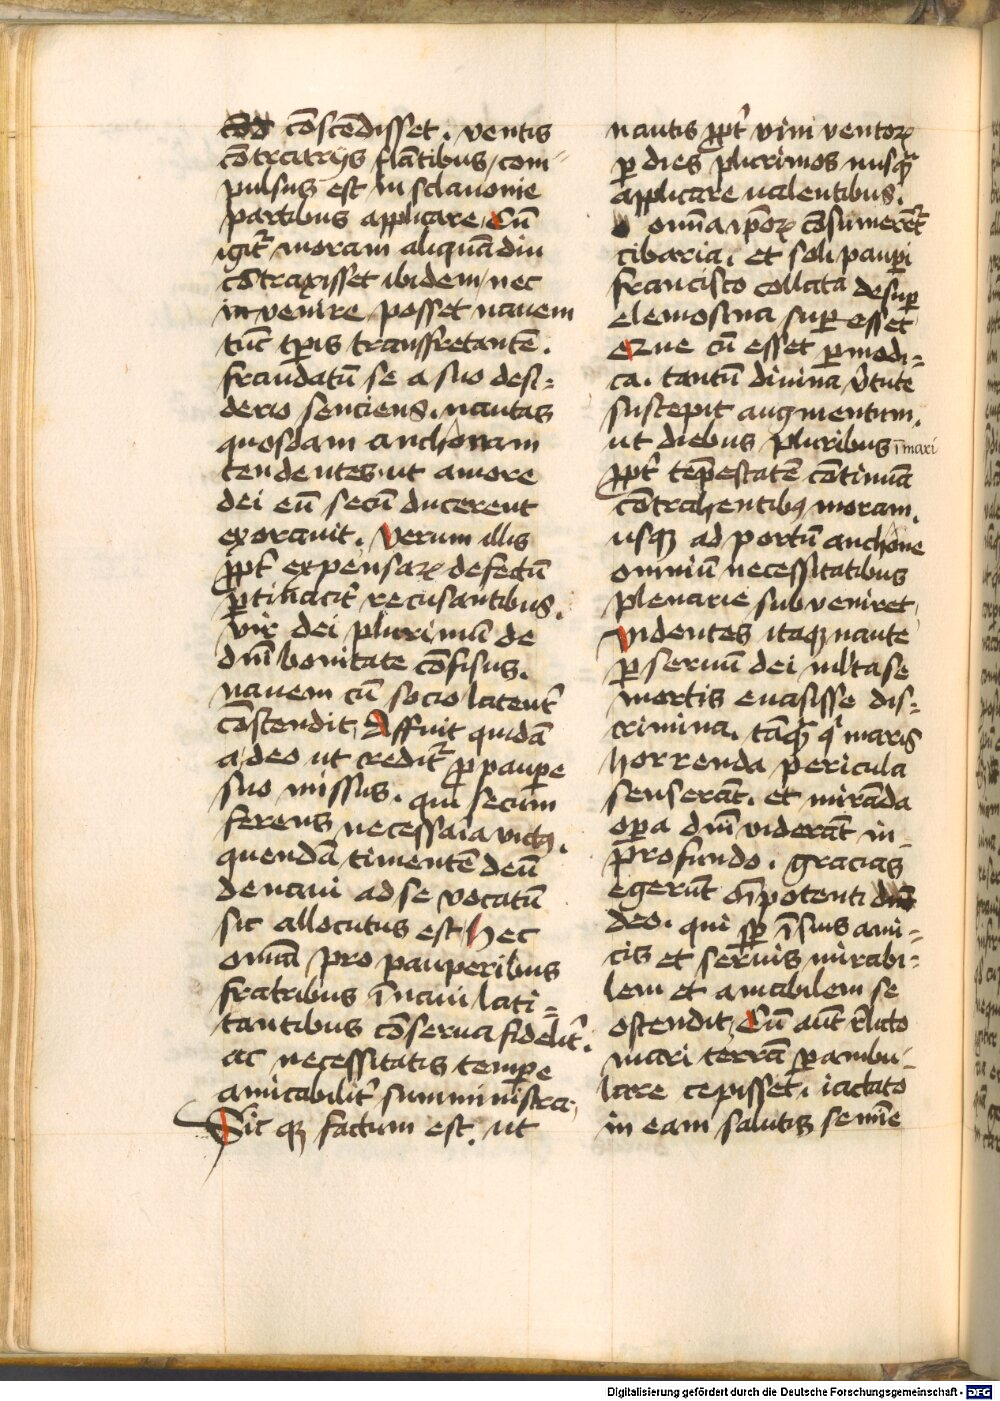 cōscēdisset. ventis
cōntrarijs flātibus, com-
pulsus est in sclauonie
partibus applicare, Cū
igit᷑ moram aliquādiu
cōtraxisset ibidem, nec
invenire posset nauem
tūc tp̄is transfretantē.
fraudatū se a suo desi=
derio senciens. nautas
quosdam anchonam
tendentes, ut amore
dei eū secū ducerent
exorauit. Verum illis
ꝓpt᷑ expensaꝝ defectū
ꝑtinacit᷑ recusantibus.
vir dei plurimū de
dn̄i bonitate cōfisus.
nauem cū socio latent᷑
cōscendit, Affuit quidā
a deo ut credit᷑ ꝓ paupe
suo missus. qui secum
ferens necessaia victꝯ.
quendā timentē deū
de naui ad se vocatū
sic allocutus est, Hec
omīa pro pauperibus
fratribus ī naui lati=
tantibus cōserua fidelit᷑.
ac necessitatis tempe
amicabilit᷑ summinīstra,
Sic qꝫ factum est. ut
nautis ꝓpt᷑ vim ventoꝝ
ꝑ dies plurimos nusqᷓ
applicare ualentibus.
omīa ip̄oꝝ cōsumerēt᷑
cibaria. et soli paupi
francisco collata desuꝑ
elemosina suꝑesset
cū esset ꝑmodi=
ca. tantū diuina v̄tute
suscepit augmentum.
ut diebus pluribus ī mari
ꝓpt᷑ tēpestatē cōtinuā
cōtrahentibꝯ moram.
usqꝫ ad portū anchōne
omniū necessitatibus
plenarie subveniret,
Videntes itaqꝫ naute
ꝑ seruū dei ml̄ta se
mortis euasisse dis=
crimina. tāqᷓ qͥ maris
horrenda pericula
senserāt. et mirāda
oꝑa dn̄i viderāt in
profundo. gracias
egerūt om̄ipotenti
deo. qui sꝑ ī suis ami-
cis et seruis mirabi=
lem et amabilem se
ostendit, Cū aūt r̄licto
mari terrā ꝑambu-
lare cepisset. iactato
in eam salutis semīe
Digitalisierung gefördert durch die Deutsche Forschungsgemeinschaft - DFG